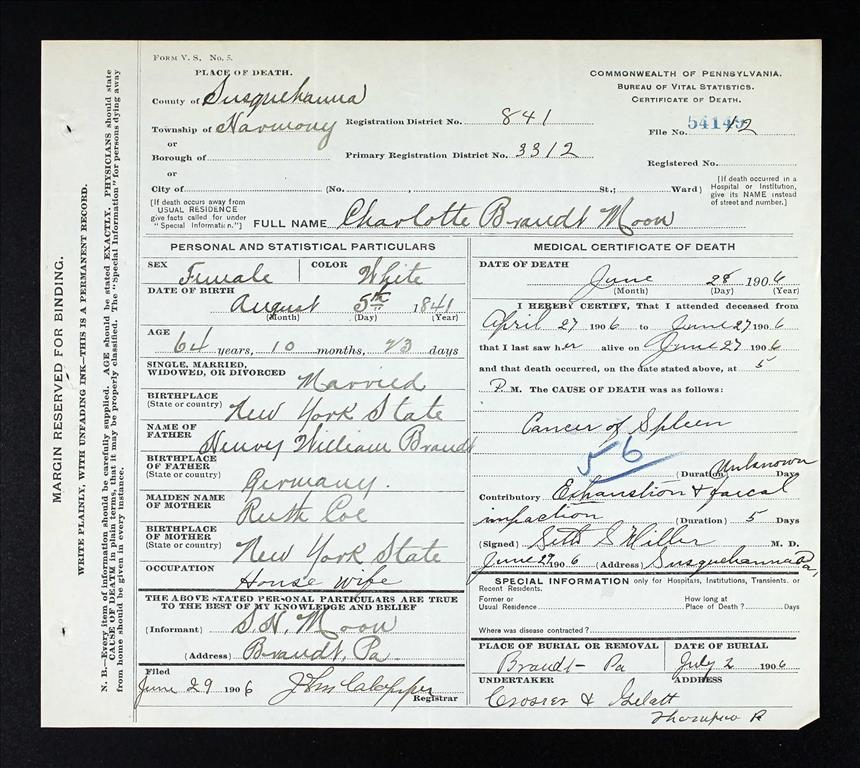 FORM V. S. No. 5.
PLACE OF DEATH.
County of Susquehanna
Township of Harmony
or
Borough of
or
City of (No. , St.; Ward)
Registration District No. 841
Primary Registration District No. 3312
COMMONWEALTH OF PENNSYLVANIA.
BUREAU OF VITAL STATISTICS.
CERTIFICATE OF DEATH.
File No. 54149 12
Registered No.
[If death occurred in a Hospital or Institution, give its NAME instead of street and number.]
[If death occurs away from USUAL RESIDENCE give facts called for under "Special Information."]
FULL NAME Charlotte Brandt Moon
PERSONAL AND STATISTICAL PARTICULARS
SEX Female COLOR White
DATE OF BIRTH
August 5th 1841
(Month) (Day) (Year)
AGE
64 years, 10 months, 23 days
SINGLE, MARRIED, WIDOWED, OR DIVORCED Married
BIRTHPLACE (State or country) New York State
NAME OF FATHER Henry William Brandt
BIRTHPLACE OF FATHER (State or country) Germany.
MAIDEN NAME OF MOTHER Ruth Coe
BIRTHPLACE OF MOTHER (State or country) New York State
OCCUPATION House wife
THE ABOVE STATED PERSONAL PARTICULARS ARE TRUE
TO THE BEST OF MY KNOWLEDGE AND BELIEF
(Informant) S. N. Moon
(Address) Brandt, Pa
Filed
June 29 1906
Registrar
MEDICAL CERTIFICATE OF DEATH
DATE OF DEATH
June 28 1906
(Month) (Day) (Year)
I HEREBY CERTIFY, That I attended deceased from
April 27 1906 to June 27 1906
that I last saw her alive on June 27 1906
and that death occurred, on the date stated above, at 5
P. M. The CAUSE OF DEATH was as follows:
Cancer of Spleen
56
(Duration) Unknown Days
Contributory Exhaustion & faecal
impaction (Duration) 5 Days
(Signed) Seth S Miller M. D.
June 29 1906 (Address) Susquehanna Pa,
SPECIAL INFORMATION only for Hospitals, Institutions, Transients, or Recent Residents.
Former or Usual Residence
How long at Place of Death? Days
Where was disease contracted?
PLACE OF BURIAL OR REMOVAL DATE OF BURIAL
Brandt - Pa July 2 1906
UNDERTAKER ADDRESS
Crosier & Gelatt
MARGIN RESERVED FOR BINDING.
WRITE PLAINLY, WITH UNFADING INK—THIS IS A PERMANENT RECORD.
N. B.—Every item of information should be carefully supplied. AGE should be stated EXACTLY. PHYSICIANS should state
CAUSE OF DEATH in plain terms, that it may be properly classified. The "Special Information" for persons dying away
from home should be given in every instance.